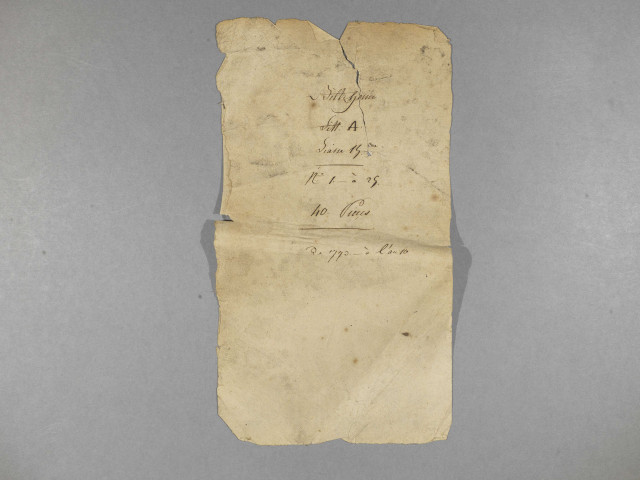 Lett A
Liasse 15me
No 1 à 25
40 Pièces
De 1793 à l'an 10